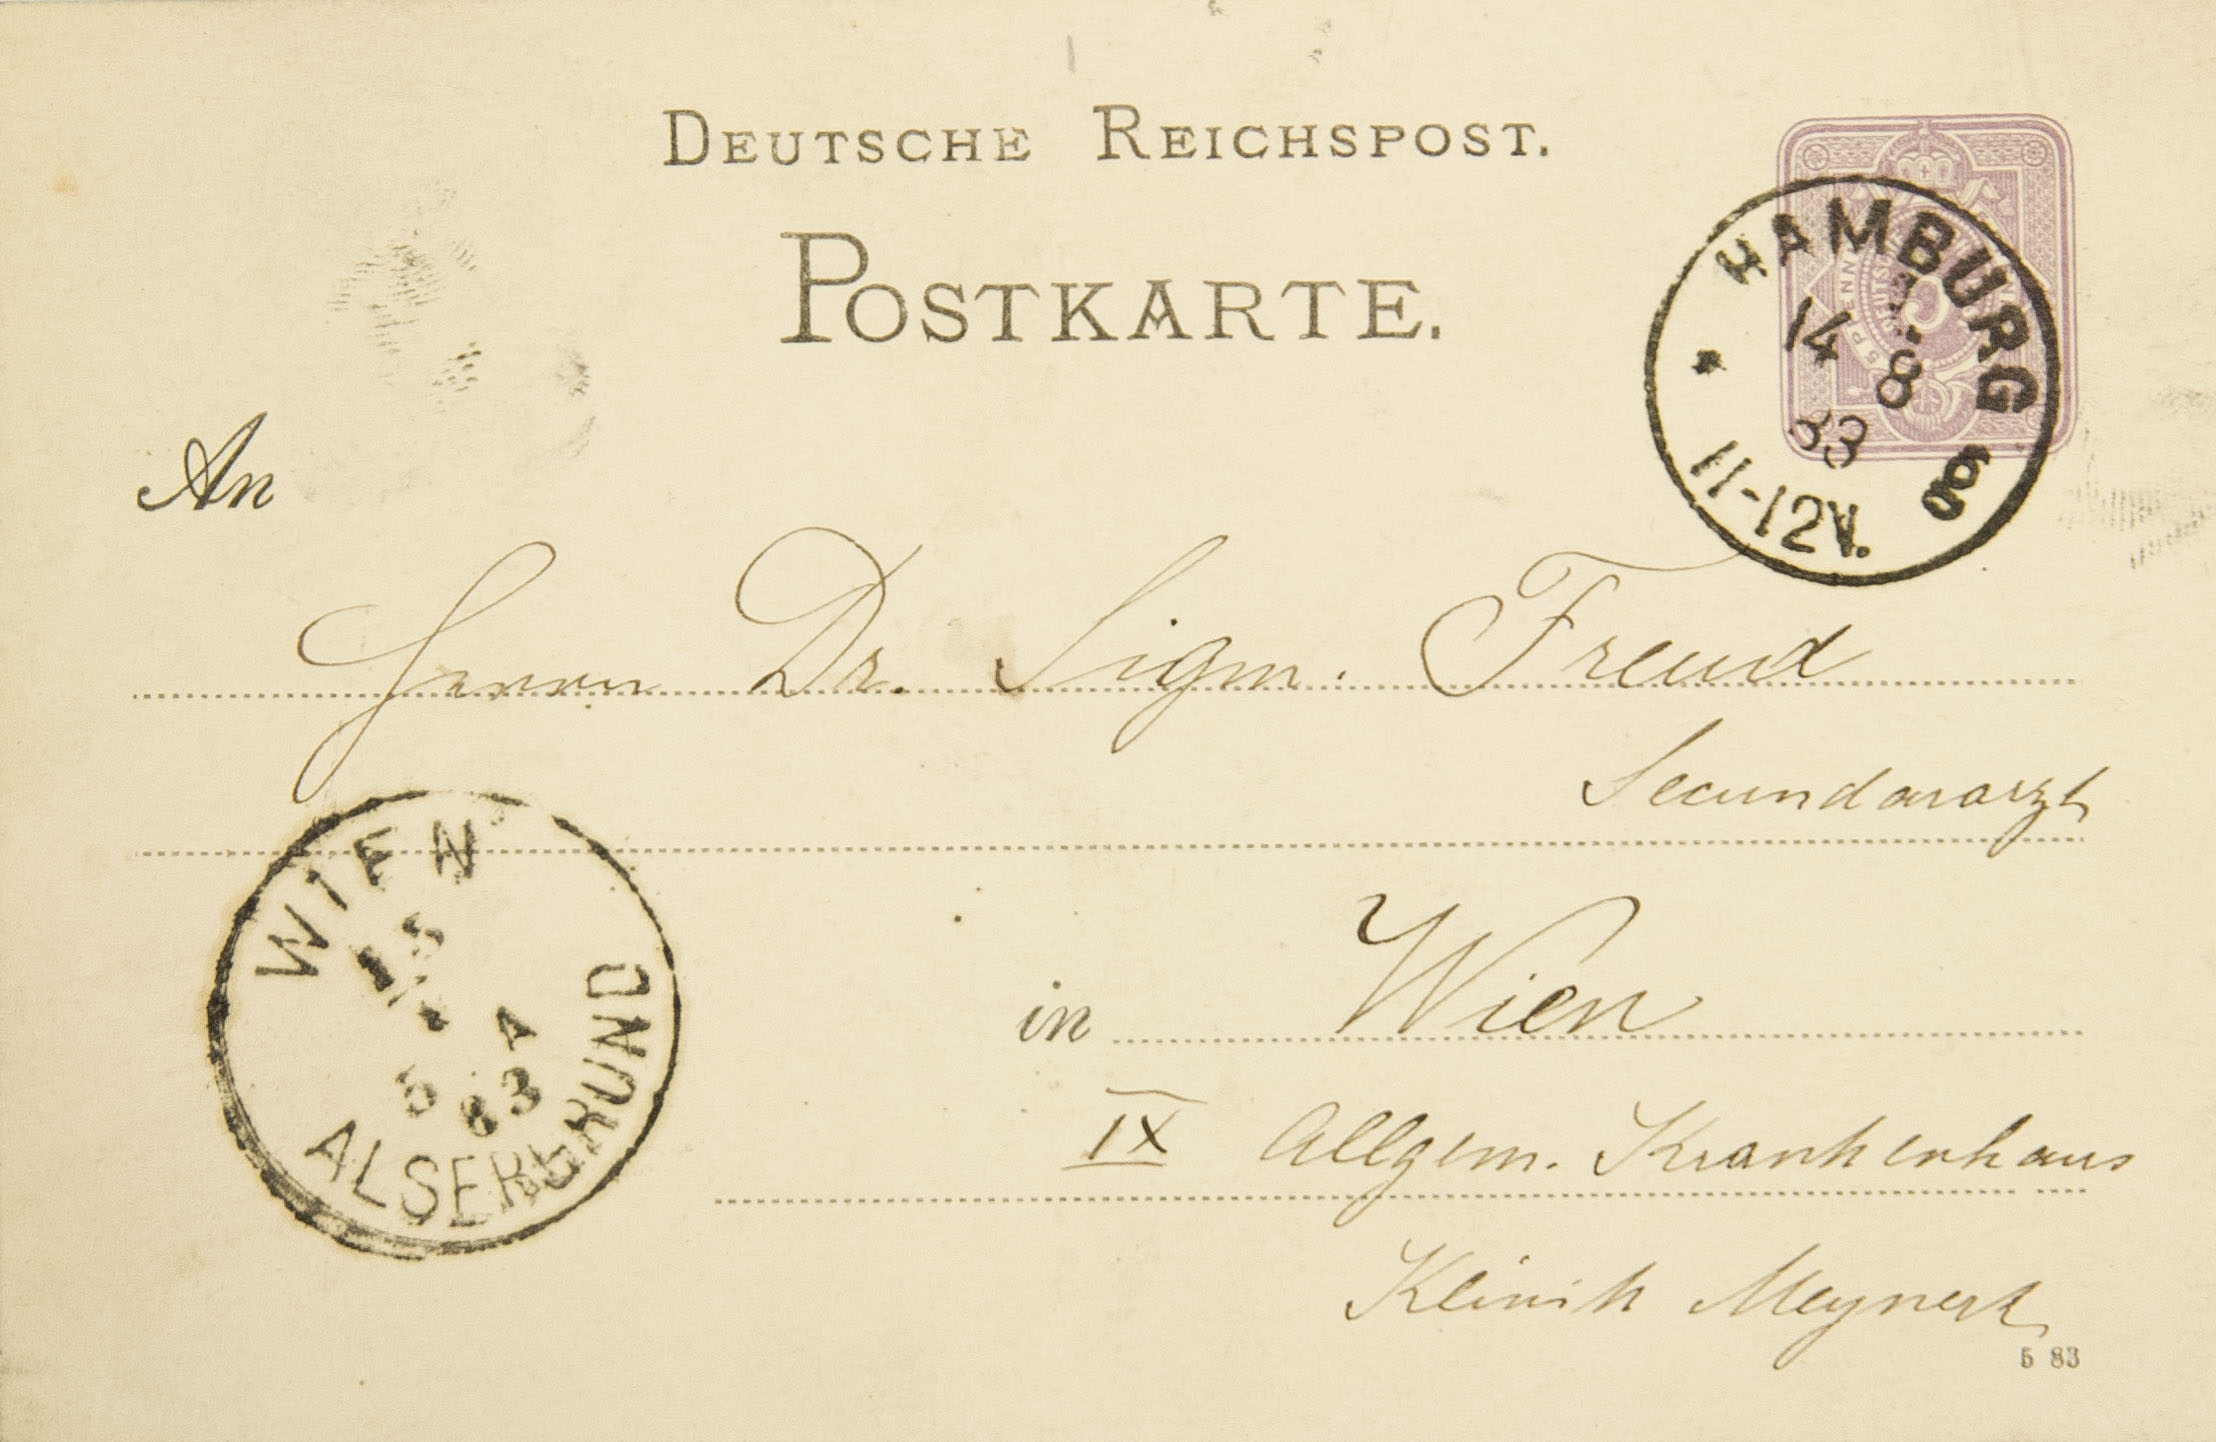 DEUTSCHE REICHSPOST.
POSTKARTE.
HAMBURG
14 8
83
11-12V.
An
Herrn Dr. Sigm. Freud
Secundararzt
WIEN
83
ALSERGRUND
in Wien
IX Allgem. Krankenhaus
Klinik Meynert
5 83